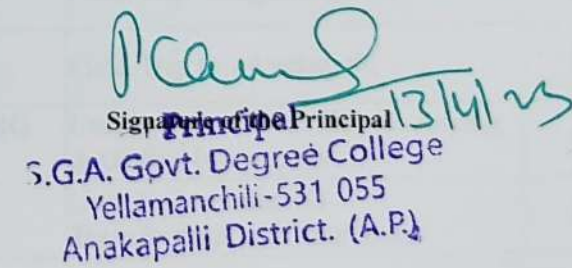 13/4/23
Signature of the Principal
Principal
S.G.A. Govt. Degree College
Yellamanchili-531 055
Anakapalli District. (A.P.)